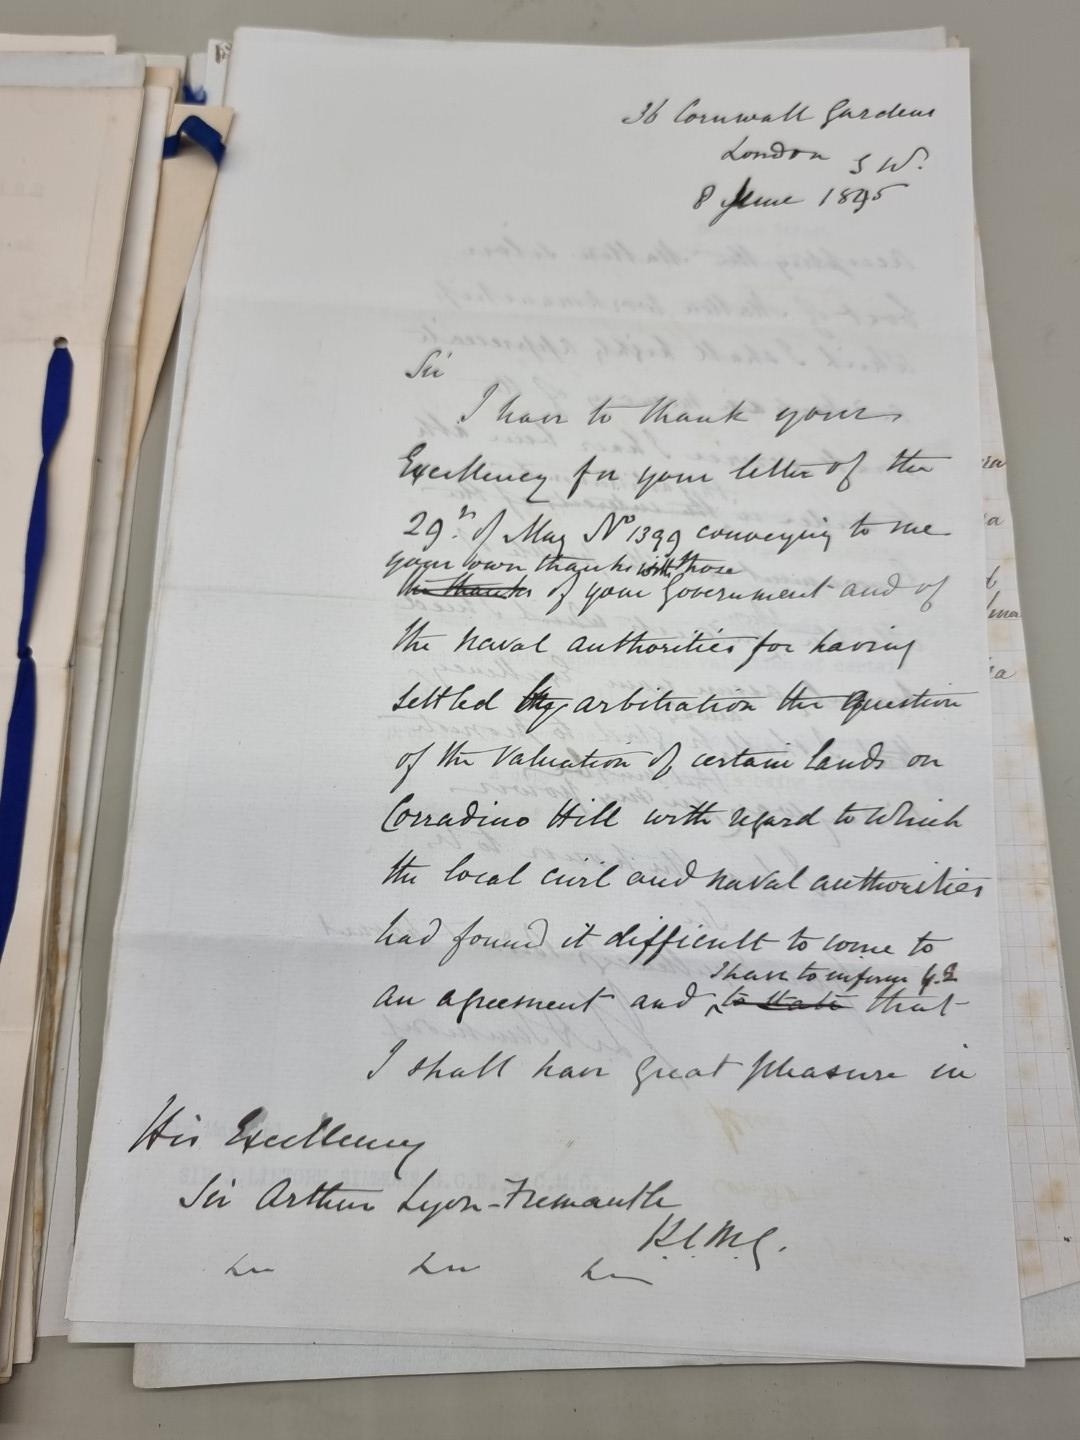 36 Cornwall Gardens
London S W.
8 June 1895
Sir
I have to thank your
Excellency for your letter of the
29th of May No 1399 conveying to me
your own thanks with those
the thanks of your Government and of
the naval authorities for having
settled by arbitration the question
of the valuation of certain lands on
Corradino Hill with regard to which
the local civil and naval authorities
had found it difficult to come to
I have to inform Y.E
an agreement and to state that
I shall have great pleasure in
His Excellency
Sir Arthur Lyon-Fremantle
K.C.M.G.